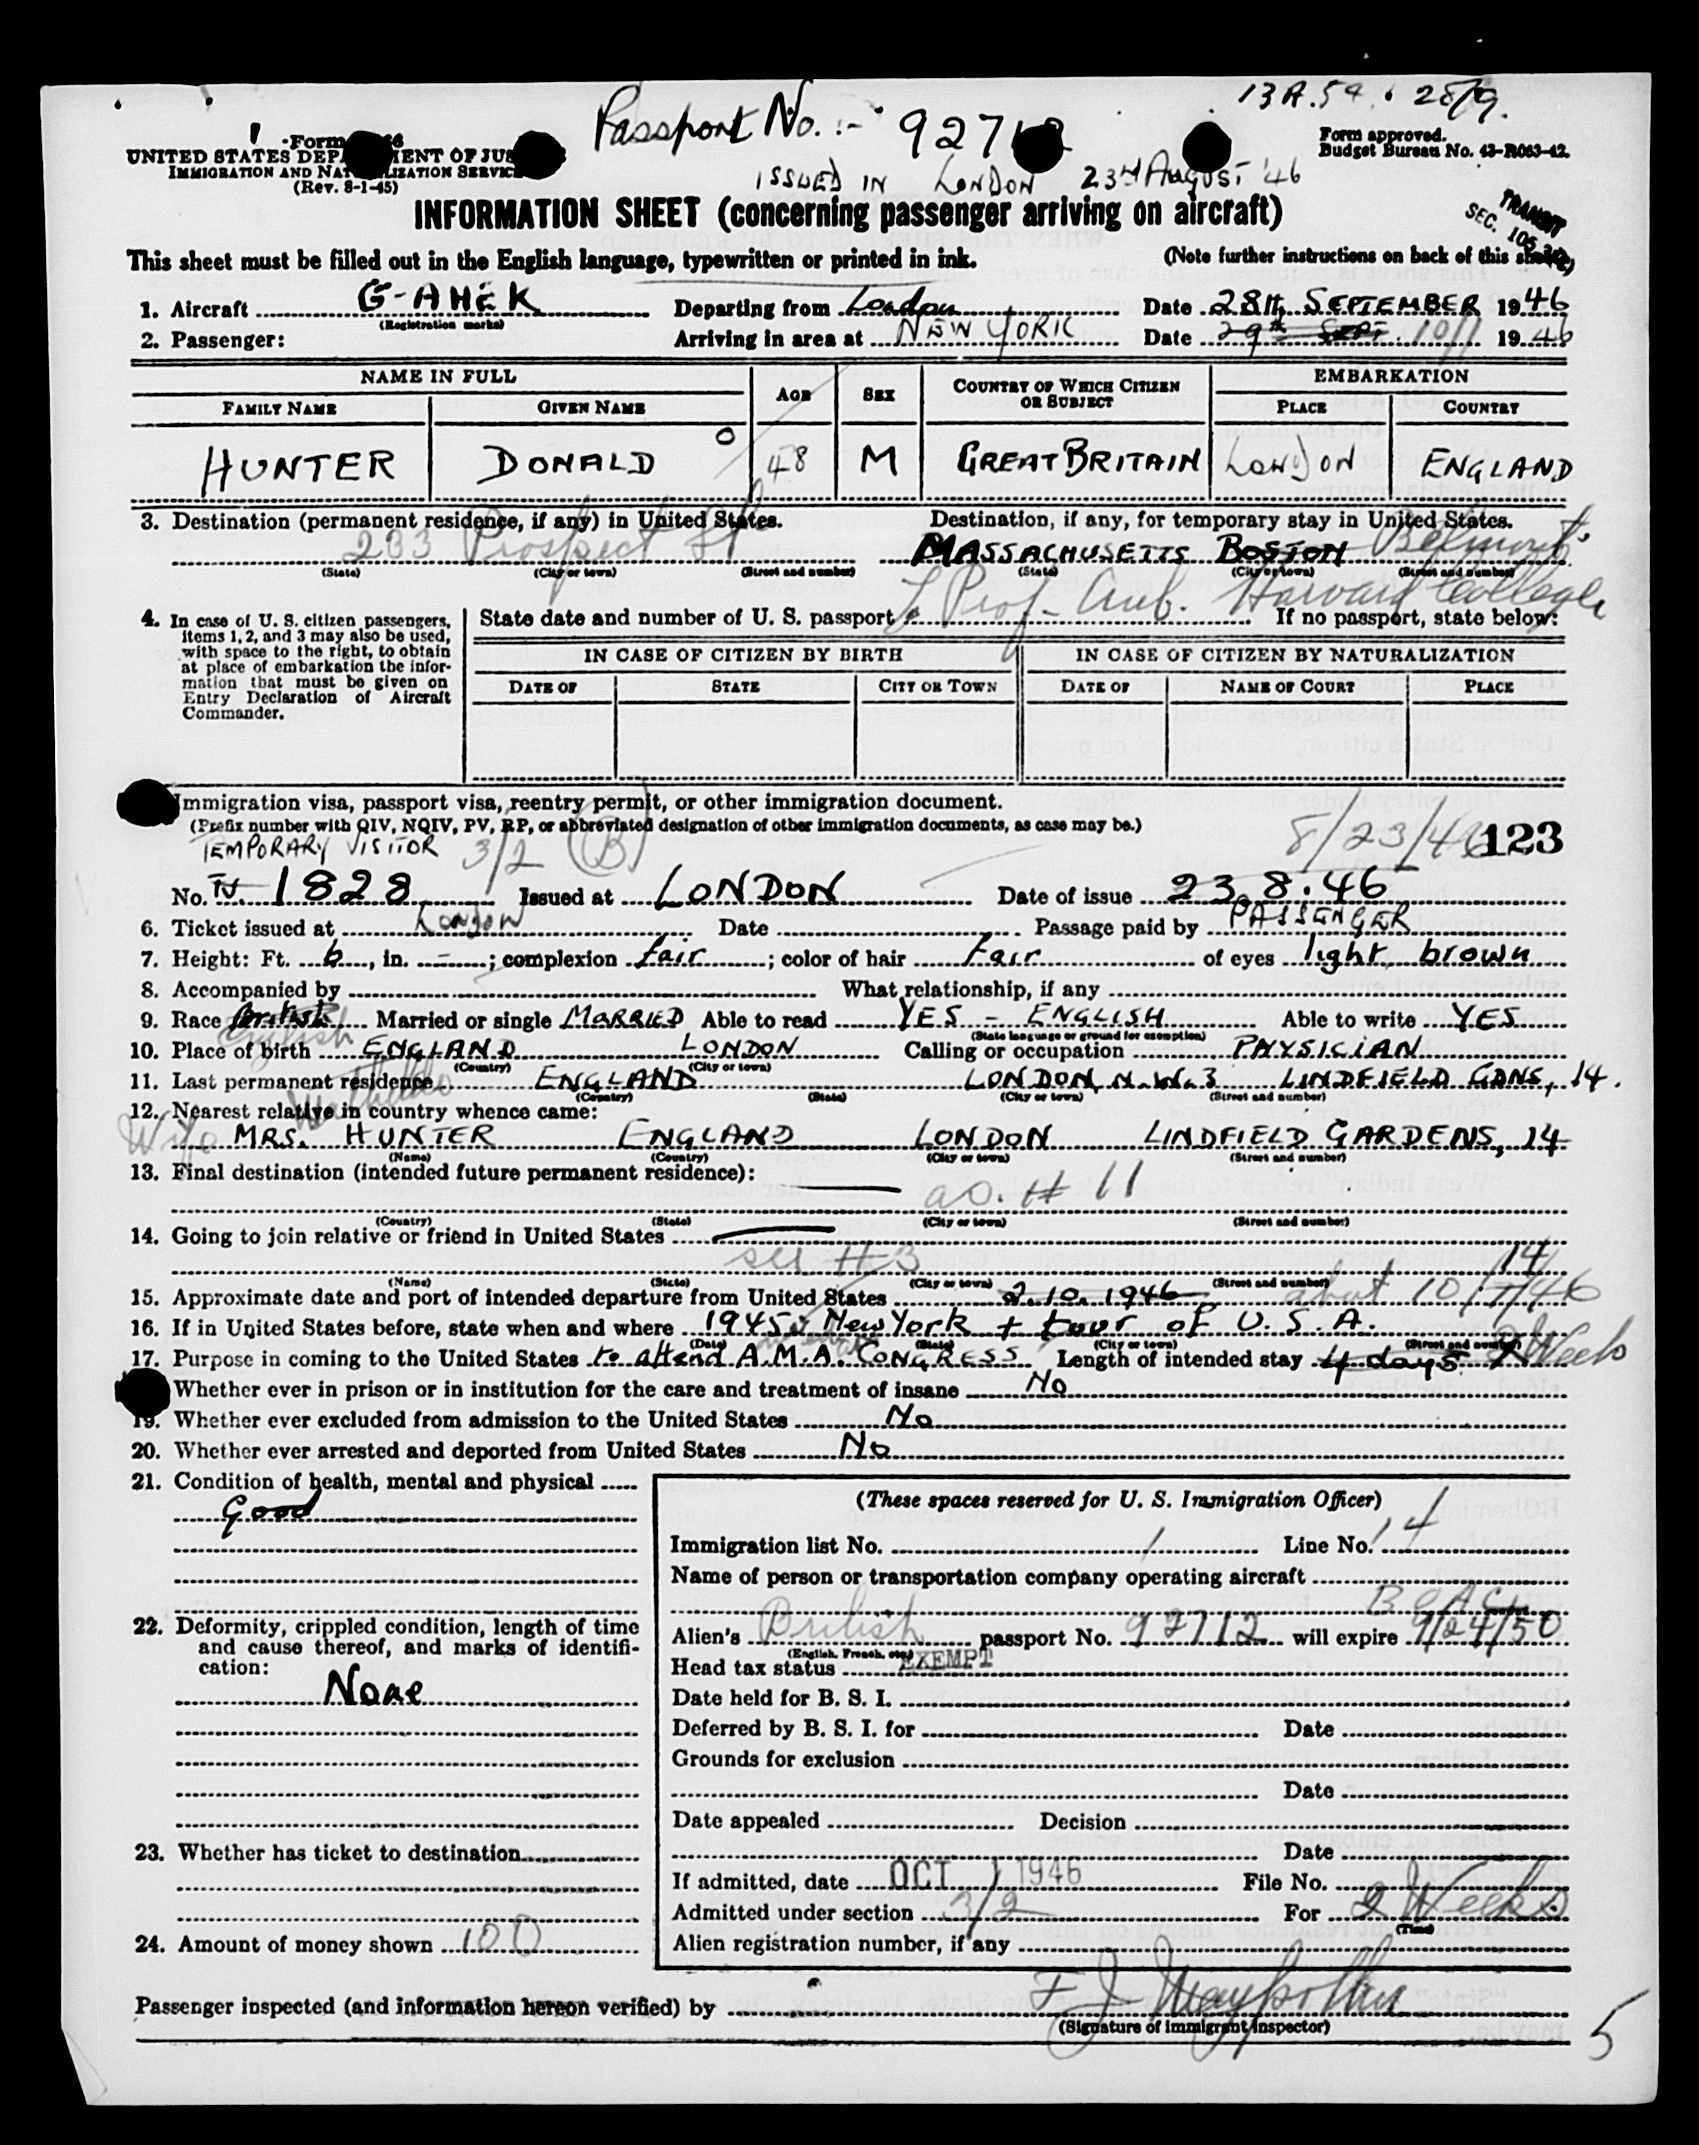 13A.59. 28/9.
Passport No. :- 9271
ISSUED IN LONDON 23rd AUGUST '46
Form
UNITED STATES DEP MENT OF JUS
IMMIGRATION AND NAT LIZATION SERVICE
(Rev. 8-1-45)
Form approved.
Budget Bureau No. 43-R063-42.
INFORMATION SHEET (concerning passenger arriving on aircraft)
TRANSIT
SEC. 105.
This sheet must be filled out in the English language, typewritten or printed in ink.
(Note further instructions on back of this sheet.)
1. Aircraft G-AHEK Departing from London Date 28th SEPTEMBER 1946
(Registration marks)
2. Passenger: Arriving in area at NEW YORK Date 29th SEPT. 10/1 1946
NAME IN FULL AGE SEX COUNTRY OF WHICH CITIZEN OR SUBJECT EMBARKATION
FAMILY NAME GIVEN NAME PLACE COUNTRY
HUNTER DONALD O 48 M GREAT BRITAIN LONDON ENGLAND
3. Destination (permanent residence, if any) in United States. Destination, if any, for temporary stay in United States.
233 Prospect St MASSACHUSETTS BOSTON Belmont
(State) (City or town) (Street and number) (State) (City or town) (Street and number)
Prof. Harvard College
4. In case of U. S. citizen passengers, items 1, 2, and 3 may also be used, with space to the right, to obtain at place of embarkation the information that must be given on Entry Declaration of Aircraft Commander.
State date and number of U. S. passport If no passport, state below:
IN CASE OF CITIZEN BY BIRTH IN CASE OF CITIZEN BY NATURALIZATION
DATE OF STATE CITY OR TOWN DATE OF NAME OF COURT PLACE
Immigration visa, passport visa, reentry permit, or other immigration document.
(Prefix number with QIV, NQIV, PV, RP, or abbreviated designation of other immigration documents, as case may be.)
TEMPORARY VISITOR 3/2 (B) 8/23/46 123
No. TV. 1828 Issued at LONDON Date of issue 23.8.46
6. Ticket issued at London Date Passage paid by PASSENGER
7. Height: Ft. 6, in. -; complexion fair; color of hair Fair of eyes light brown
8. Accompanied by What relationship, if any
9. Race British English Married or single MARRIED Able to read YES - ENGLISH Able to write YES
(State language or ground for exemption)
10. Place of birth ENGLAND LONDON Calling or occupation PHYSICIAN
(Country) (City or town)
11. Last permanent residence ENGLAND LONDON N.W.3 LINDFIELD GDNS, 14.
(Country) (State) (City or town) (Street and number)
12. Nearest relative in country whence came:
Wife Mathilde MRS. HUNTER ENGLAND LONDON LINDFIELD GARDENS, 14
(Name) (Country) (City or town) (Street and number)
13. Final destination (intended future permanent residence):
as # 11
(Country) (State) (City or town) (Street and number)
14. Going to join relative or friend in United States
see #3
(Name) (State) (City or town) (Street and number)
15. Approximate date and port of intended departure from United States 2.10.1946 abat 10/14/46
16. If in United States before, state when and where 1945 New York + tour of U.S.A.
(Date) (State) (City or town) (Street and number)
17. Purpose in coming to the United States to attend A.M.A. CONGRESS Length of intended stay 4 days. 2 Weeks
Whether ever in prison or in institution for the care and treatment of insane No
19. Whether ever excluded from admission to the United States No
20. Whether ever arrested and deported from United States No
21. Condition of health, mental and physical
Good
22. Deformity, crippled condition, length of time and cause thereof, and marks of identification:
None
23. Whether has ticket to destination
24. Amount of money shown 100
(These spaces reserved for U. S. Immigration Officer)
Immigration list No. 1 Line No. 14
Name of person or transportation company operating aircraft
BOAC
Alien's British passport No. 92712 will expire 9/24/50
(English, French, etc.)
Head tax status EXEMPT
Date held for B. S. I.
Deferred by B. S. I. for Date
Grounds for exclusion
Date
Date appealed Decision
Date
If admitted, date OCT 1 1946 File No.
Admitted under section 3/2 For 2 Weeks
(Time)
Alien registration number, if any
Passenger inspected (and information hereon verified) by F J
(Signature of immigrant inspector)
5